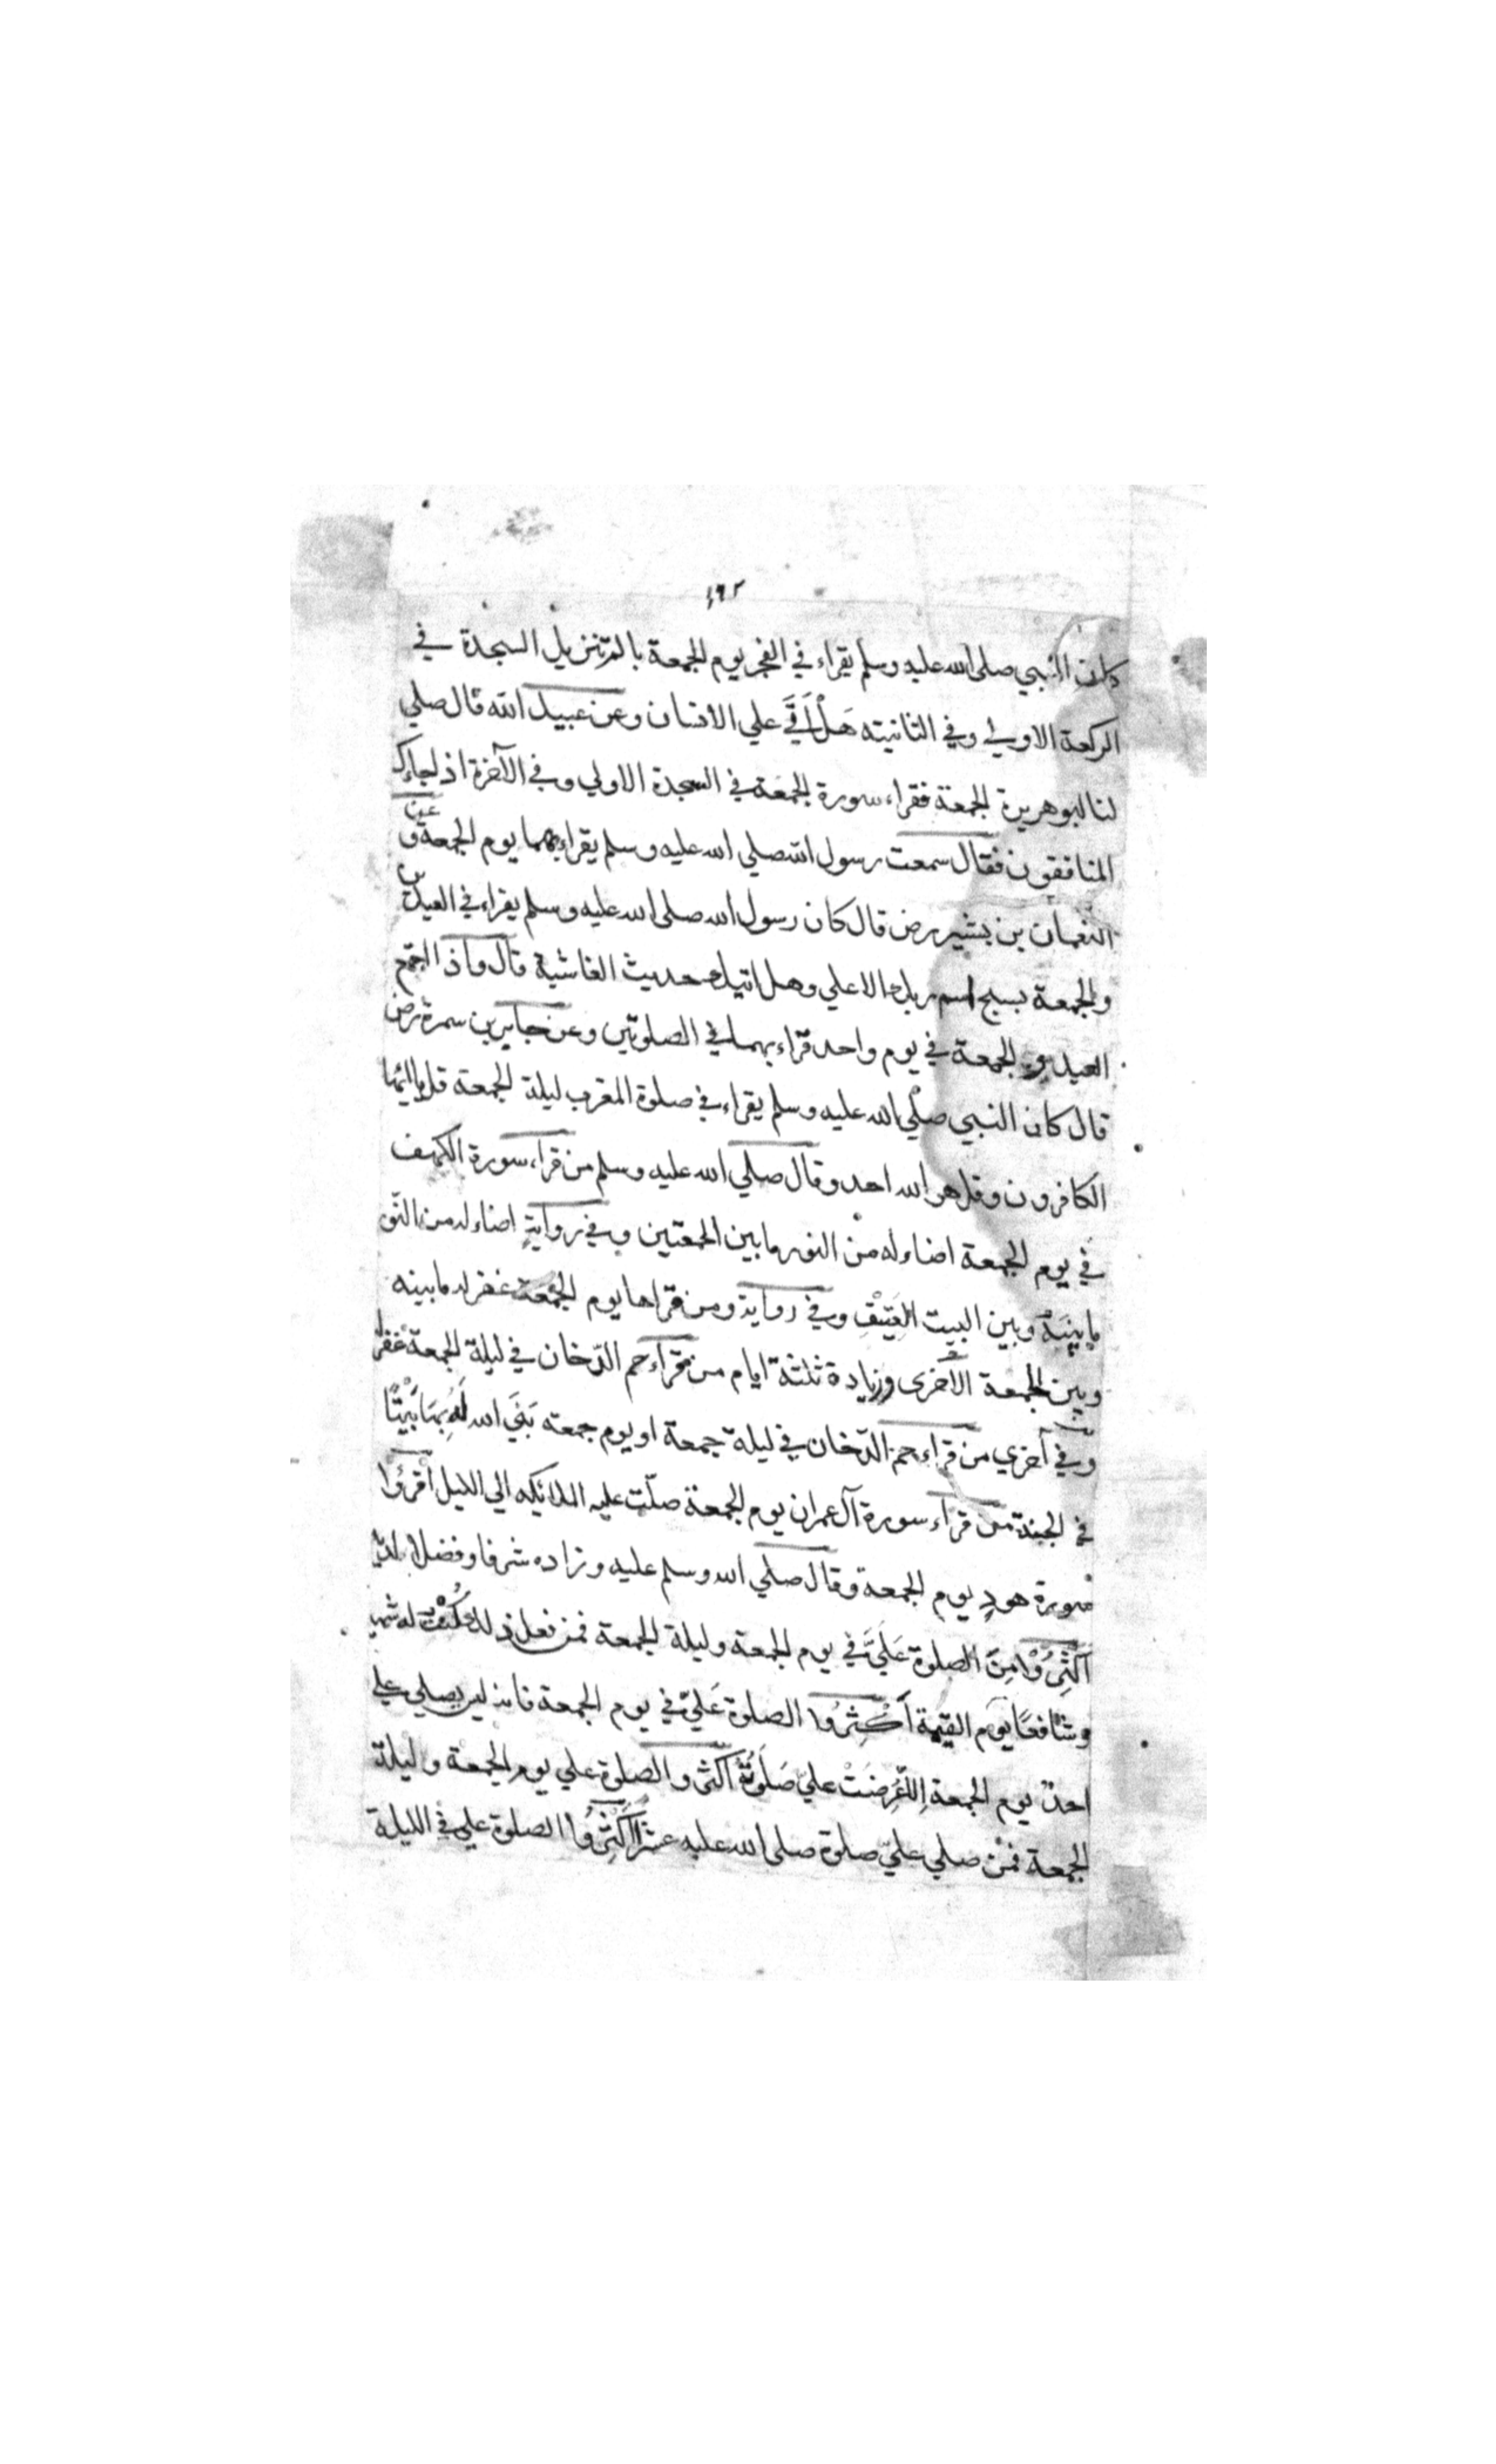 ١٩٢
كان النبي صلى الله عليه وسلم يقراء في الفجر يوم الجمعة بالم تنزيل السجدة في
الركعة الاولي وفي الثانيته هَلْ اَتَيَ علي الانسان وعن عبيد الله قال صلي
لنا ابوهريرة الجمعة فقراء سورة الجمعة في السجدة الاولي وفي الآخرة اذا جاءك
المنافقون فقال سمعت رسول الله صلي الله عليه وسلم يقراء بهما يوم الجمعة وعن
النعمان بن بشير رض قال كان رسول الله صلى الله عليه وسلم يقراء في العيدين
والجمعة بسبح اسم ربك الاعلي وهل اتيك حديث الغاشية قال واذا اجتمع
العيد والجمعة في يوم واحد قراء بهما في الصلوتين وعن جابر بن سمرة رض
قال كان النبي صلي الله عليه وسلم يقراء في صلوة المغرب ليلة الجمعة قل يا ايها
الكافرون وقل هو الله احد وقال صلي الله عليه وسلم من قراء سورة الكهف
في يوم الجمعة اضاء له منْ النور ما بين الجمعتين وفي روايةٍ اضاء له من النّور
ما بينَهُ وبين البيت العَتِيْقِ وفي رواية ومن قراها يوم الجُمُعَة غفر له ما بينه
وبين الجمعة الاُخرى وزيادة ثلثة ايام من قراء حم الدّخان في ليلة الجمعة غفر له
وفي آخري من قراء حم الدّخان في ليلة جمعة او يوم جمعته بَنَيَ الله لَهُ بِهَا بَيْتًا
في الجنة من قراء سورة آل عمران يوم الجمعة صلّت عليه الملائيكه الي الليل اقرؤا
سورة هودٍ يوم الجمعة وقال صلي الله وسلم عليه وزاده شرفا وفضلا لديه
اَكْثِرُوْا مِنَ الصلوة عَلَيَّ في يوم الجمعة وليلة الجمعة فمن فعل ذلك كُنْتُ له شهيدا
وشافعًا يوم القيمة اَكْثِرُوا الصلوة عَليّ في يوم الجمعة فانه ليس يصلي علي
احدٌ يوم الجمعة اِلّا عُرِضَتْ عليّ صَلَوتُهُ اكثروا الصلوة علي يوم الجمعة وليلة
الجمعة فمنْ صلي عليّ صلوة صلى الله عليه عشرًا اَكْثِرُوا الصلوة علي في الليلة